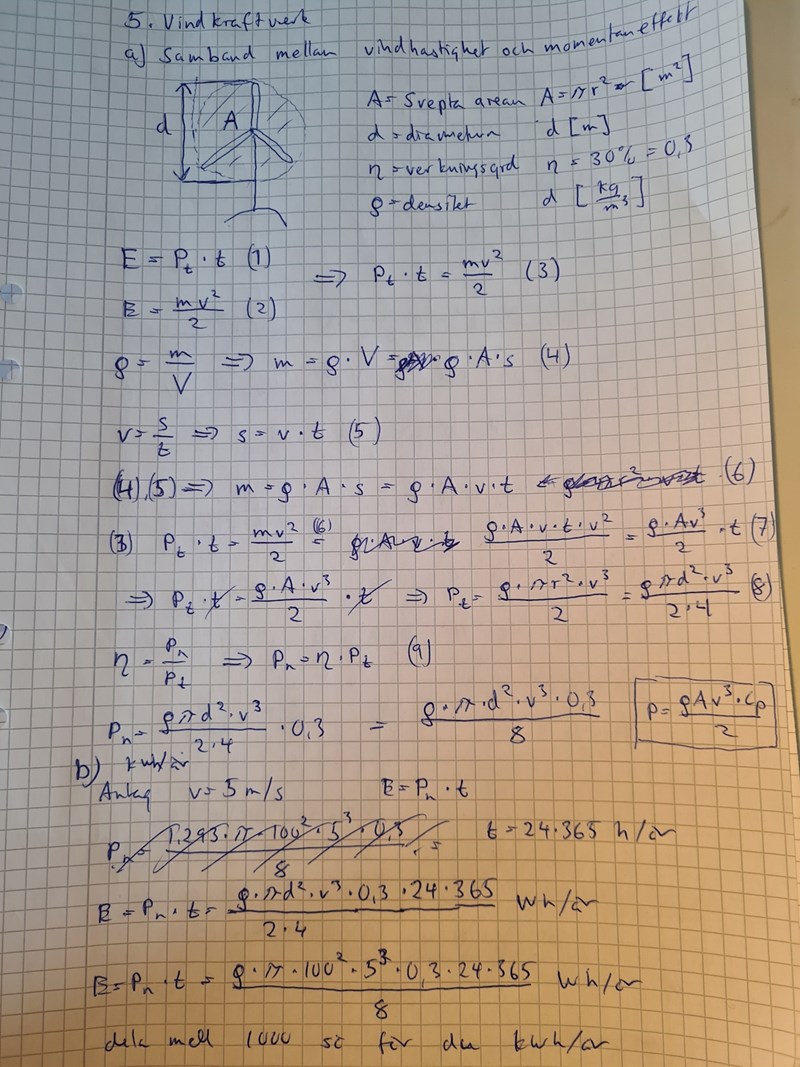 5. Vindkraftverk
a) Samband mellan vindhastighet och momentaneffekt
d A
A = Svepta arean A = πr² [m²]
d = diametern d [m]
η = verkningsgrd η = 30% = 0,3
ρ = densitet d [kg/m³]
E = Pₜ · t (1)
⇒ Pₜ · t = mv²/2 (3)
E = mv²/2 (2)
ρ = m/V ⇒ m = ρ · V = ρ · A · s (4)
v = s/t ⇒ s = v · t (5)
(4),(5) ⇒ m = ρ · A · s = ρ · A · v · t (6)
(3) Pₜ · t = mv²/2 (6)= ρ · A · v · t · v²/2 = ρ · Av³/2 · t (7)
⇒ Pₜ · t = ρ · A · v³/2 · t ⇒ Pₜ = ρ · πr² · v³/2 = ρπd² · v³/2·4 (8)
η = Pₙ/Pₜ ⇒ Pₙ = η · Pₜ (9)
Pₙ = ρπd² · v³/2·4 · 0,3 = ρ · π · d² · v³ · 0,3/8
P = ρAv³ · Cp/2
b) kwh/år
Antag v = 5 m/s E = Pₙ · t
Pₙ = 1,293 · π · 100² · 5³ · 0,3/8
t = 24·365 h/år
E = Pₙ · t = ρ · πd² · v³ · 0,3 · 24 · 365/2·4 Wh/år
E = Pₙ · t = ρ · π · 100² · 5³ · 0,3 · 24 · 365/8 Wh/år
dela med 1000 så får du kwh/år